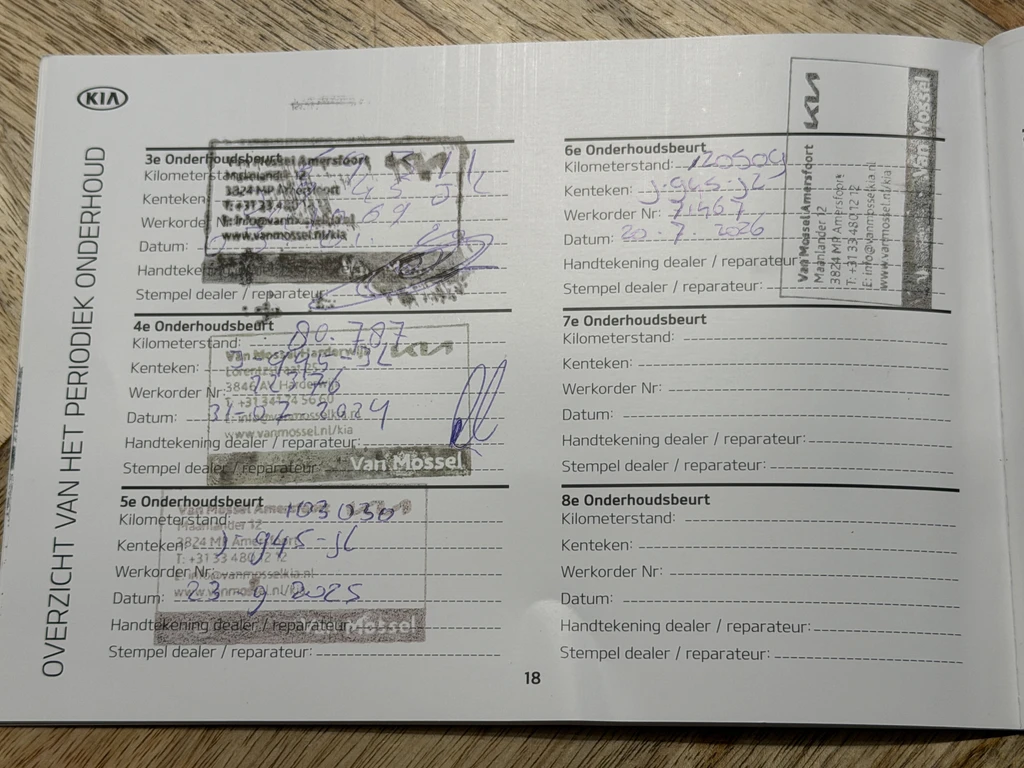 KIA
OVERZICHT VAN HET PERIODIEK ONDERHOUD
3e Onderhoudsbeurt
Kilometerstand:
Kenteken:
Werkorder Nr:
Datum:
Handtekening dealer / reparateur:
Stempel dealer / reparateur:
Van Mossel Amersfoort
Maanlander 12
3824 MP Amersfoort
www.vanmossel.nl/kia
4e Onderhoudsbeurt
Kilometerstand: 80.787
Kenteken: J-945-JL
Werkorder Nr:
Datum: 31-07 2024
Handtekening dealer / reparateur:
Stempel dealer / reparateur:
Van Mossel Harderwijk KIA
3846 AV Harderwijk
www.vanmossel.nl/kia
Van Mossel
5e Onderhoudsbeurt
Kilometerstand: 103030
Kenteken: J-945-JL
Werkorder Nr:
Datum: 23-9 2025
Handtekening dealer / reparateur:
Stempel dealer / reparateur:
Van Mossel Amersfoort
Maanlander 12
3824 MP Amersfoort
T: +31 33 480 12 12
E: info@vanmosselkia.nl
www.vanmossel.nl/kia
Van Mossel
6e Onderhoudsbeurt
Kilometerstand: 120504
Kenteken: J-945-JL
Werkorder Nr:
Datum: 20-7-2026
Handtekening dealer / reparateur:
Stempel dealer / reparateur:
KIA
Van Mossel Amersfoort
Maanlander 12
3824 MP Amersfoort
T: +31 33 480 12 12
E: info@vanmosselkia.nl
www.vanmossel.nl/kia
Van Mossel
7e Onderhoudsbeurt
Kilometerstand:
Kenteken:
Werkorder Nr:
Datum:
Handtekening dealer / reparateur:
Stempel dealer / reparateur:
8e Onderhoudsbeurt
Kilometerstand:
Kenteken:
Werkorder Nr:
Datum:
Handtekening dealer / reparateur:
Stempel dealer / reparateur:
18